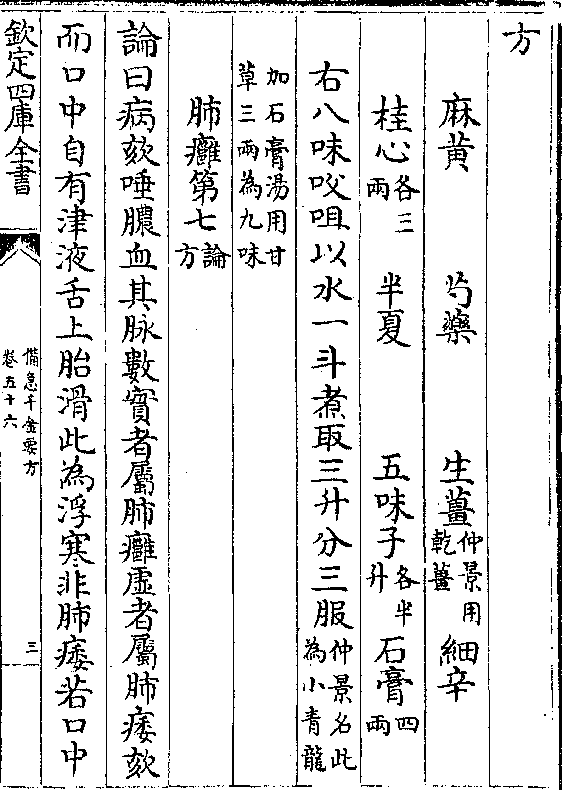 方
麻黄 芍藥 生薑仲景用乾薑 細辛
桂心各三兩 半夏 五味子各半升 石膏四兩
右八味㕮咀以水一斗煮取三升分三服仲景名此為小青龍
加石膏湯用甘草三兩為九味
肺癰第七論方
論曰病欬唾膿血其脉數實者屬肺癰虛者屬肺痿欬
而口中自有津液舌上胎滑此為浮寒非肺痿若口中
欽定四庫全書
備急千金要方
卷五十六
三